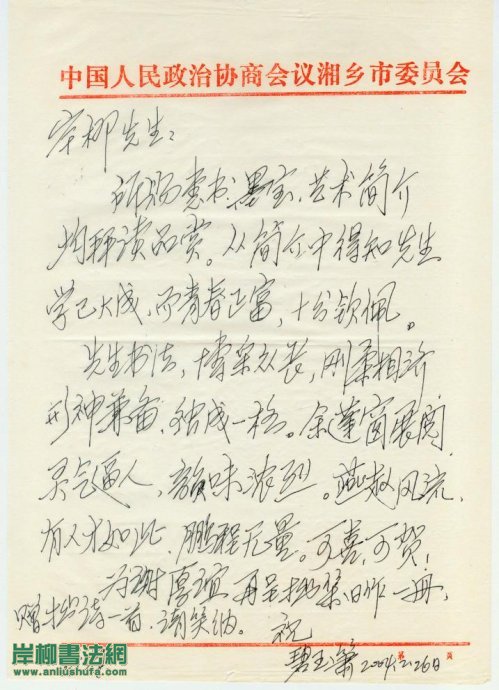 中国人民政治协商会议湘乡市委员会
岸柳先生：
所赐惠书、墨宝、艺术简介
均拜读品赏。从简介中得知先生
学已大成，而青春正富，十分钦佩。
先生书法，博采众长，刚柔相济
形神兼备，独成一格。余蓬窗展阅，
灵气逼人，韵味浓烈。燕赵风流，
有人才如此，鹏程无量。可喜，可贺，
为谢厚谊，再呈拙集旧作一册，
赠拙诗一首，请笑纳。
祝
碧玉箫 2004.12.26日
第 页
岸柳書法網
www.anliushufa.com